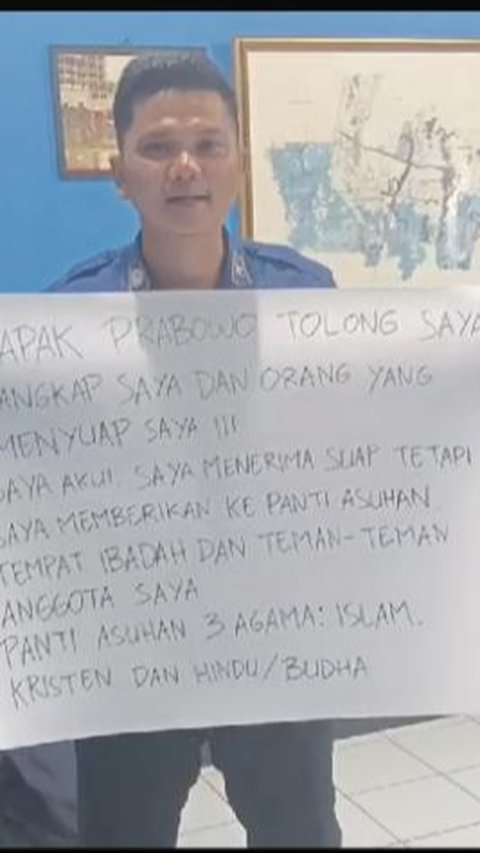 APAK PRABOWO TOLONG SAYA
ANGKAP SAYA DAN ORANG YANG
MENYUAP SAYA !!!
SAYA AKUI SAYA MENERIMA SUAP TETAPI
SAYA MEMBERIKAN KE PANTI ASUHAN
TEMPAT IBADAH DAN TEMAN-TEMAN
ANGGOTA SAYA
PANTI ASUHAN 3 AGAMA: ISLAM.
KRISTEN DAN HINDU/BUDHA